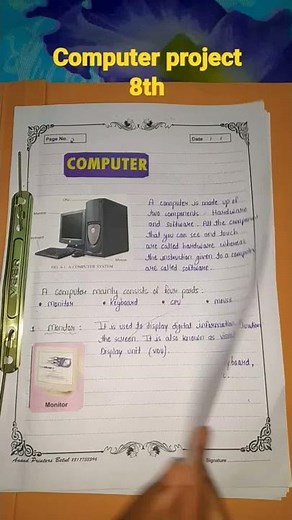 Computer project
8th
Page No. 2
Date / /
COMPUTER
A computer is made up of
two components - Hardware
and software. All the components
that you can see and touch
are called hardware whereas
the instruction given to a computer
are called software.
FIG. A COMPUTER SYSTEM
A computer mainly consists of four parts.
• Monitor • Keyboard • CPU • mouse
1. Monitor: It is used to display digital information
the screen. It is also known as
Display unit (VDU).
Monitor
Anand Printers Betul
Signature